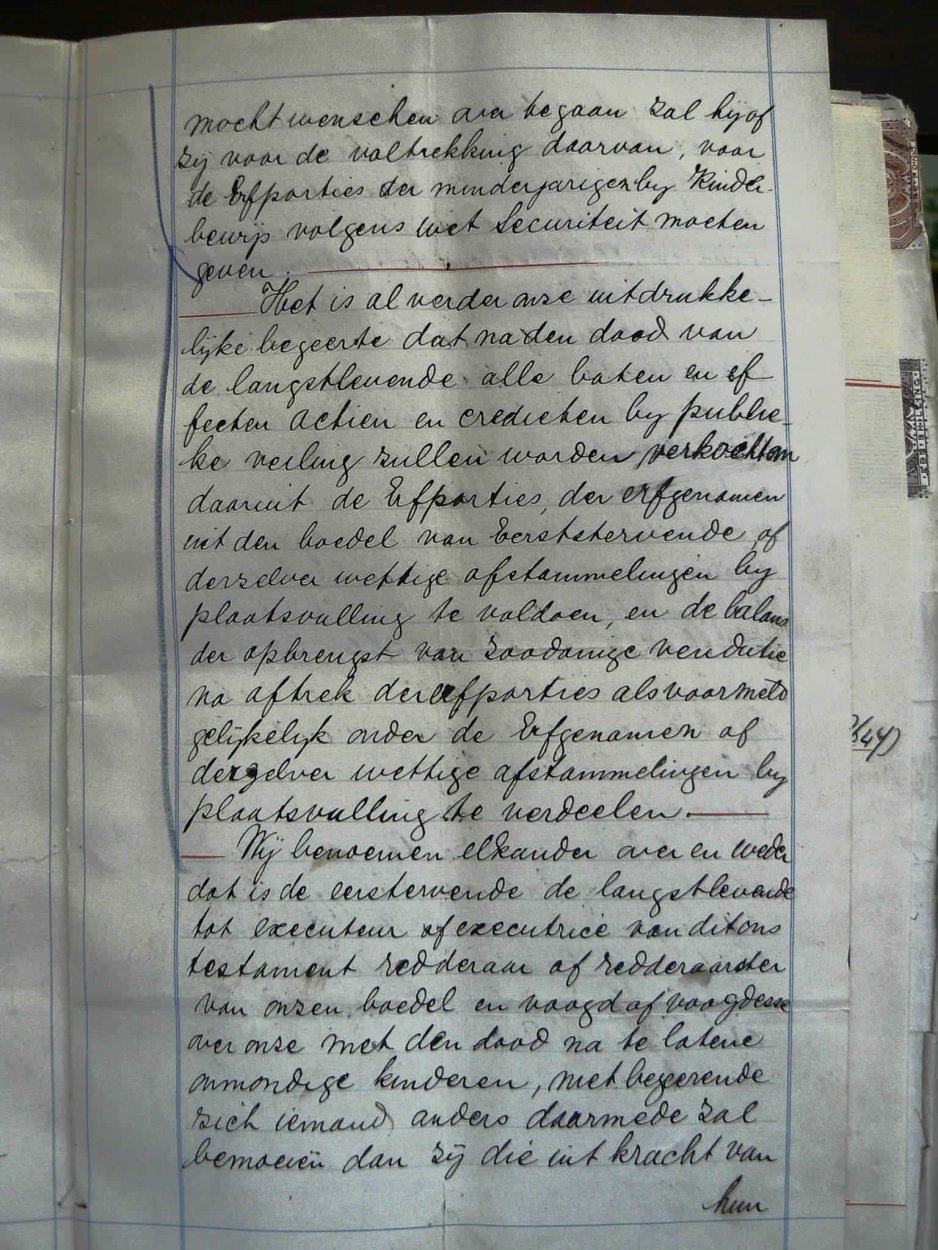 mocht wenschen over te gaan zal hij of
zij voor de voltrekking daarvan, voor
de Erfporties der minderjarigen by Kinder-
bewijs volgens wet Securiteit moeten
geven.
Het is al verder onze uitdrukke-
lijke begeerte dat na den dood van
de langstlevende alle baten en ef
fecten actien en credieten by publie-
ke veiling zullen worden verkocht om
daaruit de Erfporties, der erfgenamen
uit den boedel van Eerststervende of
derzelver wettige afstammelingen by
plaatsvulling te voldoen, en de balans
der opbrengst van zoodanige vendutie
na aftrek der erfporties als voormeld
gelijkelyk onder de Erfgenamen of
derzelver wettige afstammelingen by
plaatsvulling te verdeelen.
Wij benoemen elkander over en weder
dat is de eerstervende de langstlevende
tot executeur of executrice van dit ons
testament redderaar of redderaarster
van onzen boedel en voogd of voogdesse
over onze met den dood na te latene
onmondige kinderen, niet begeerende
zich iemand anders daarmede zal
bemoeien dan zij die uit kracht van
hun